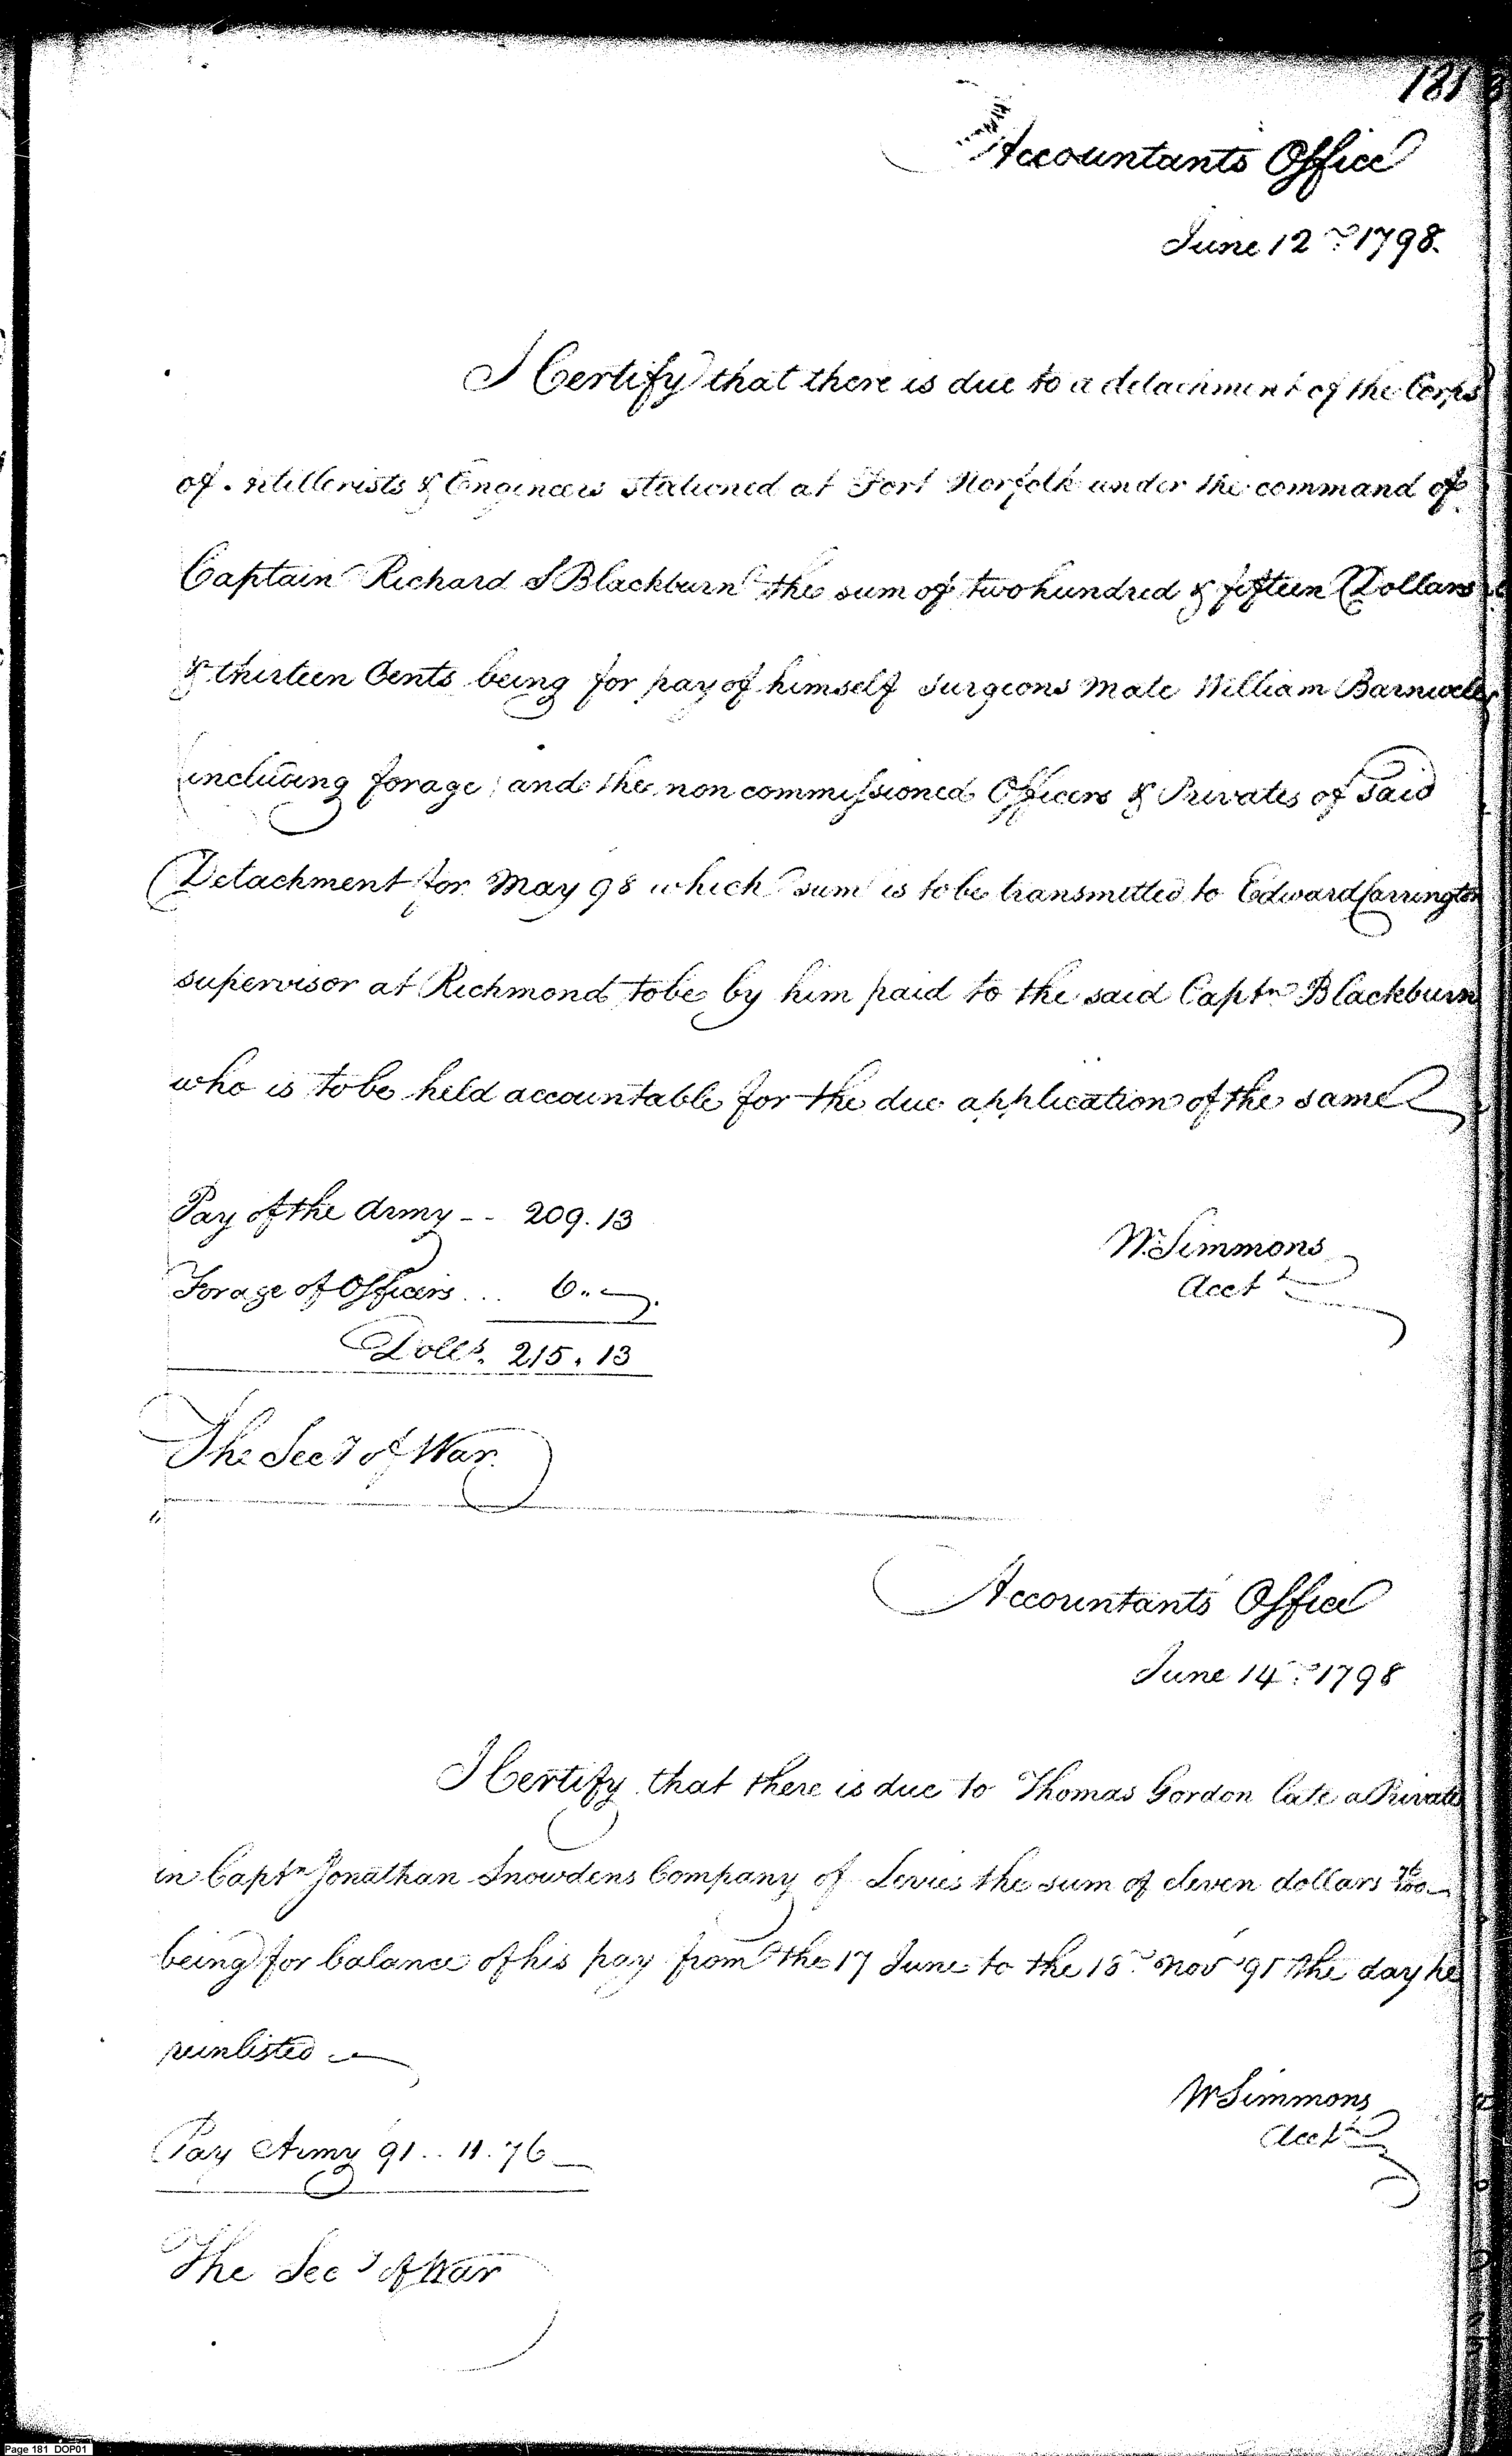 181
Accountants Office
June 12th 1798.
I Certify that there is due to a detachment of the Corps
of Artillerists & Engineers stationed at Fort Norfolk under the command of
Captain Richard S Blackburn the sum of two hundred & fifteen Dollars
& thirteen Cents being for pay of himself surgeons mate William
including forage and the non commissioned Officers & Privates of Said
Detachment for May 98 which sum is to be transmitted to Edward Carrington
supervisor at Richmond to be by him paid to the said Captn Blackburn
who is to be held accountable for the due application of the same
Pay of the Army -- 209.13
W. Simmons
Acct
Forage of Officers ... 6..
Dolls. 215.13
The Secy of War.
Accountants Office
June 14th 1798
I Certify that there is due to Thomas Gordon late a Private
in Captn Jonathan Snowdens Company of Levies the sum of eleven dollars 76/100
being for balance of his pay from the 17 June to the Nov 91 the day he
reinlisted
W Simmons
Acct
Pay Army 91.. 11.76
The Secy of War
Page 181 DOP01